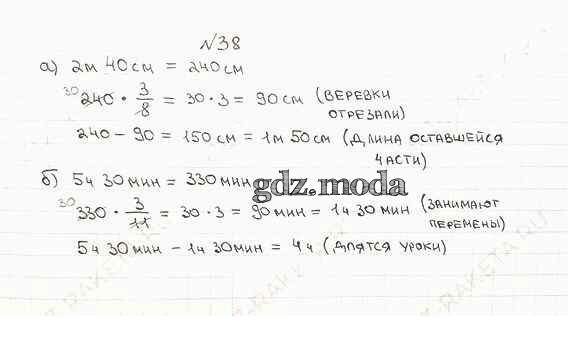 №38
а) 2м 40см = 240см
30 240 · 3/8 = 30·3 = 90см (ВЕРЕВКИ
ОТРЕЗАЛИ)
240 - 90 = 150см = 1м 50см (ДЛИНА ОСТАВШЕЙСЯ
ЧАСТИ)
б) 5ч 30мин = 330мин
gdz.moda
30 330 · 3/11 = 30·3 = 90мин = 1ч 30мин (ЗАНИМАЮТ
ПЕРЕМЕНЫ)
5ч 30мин - 1ч 30мин = 4ч (ДЛЯТСЯ УРОКИ)